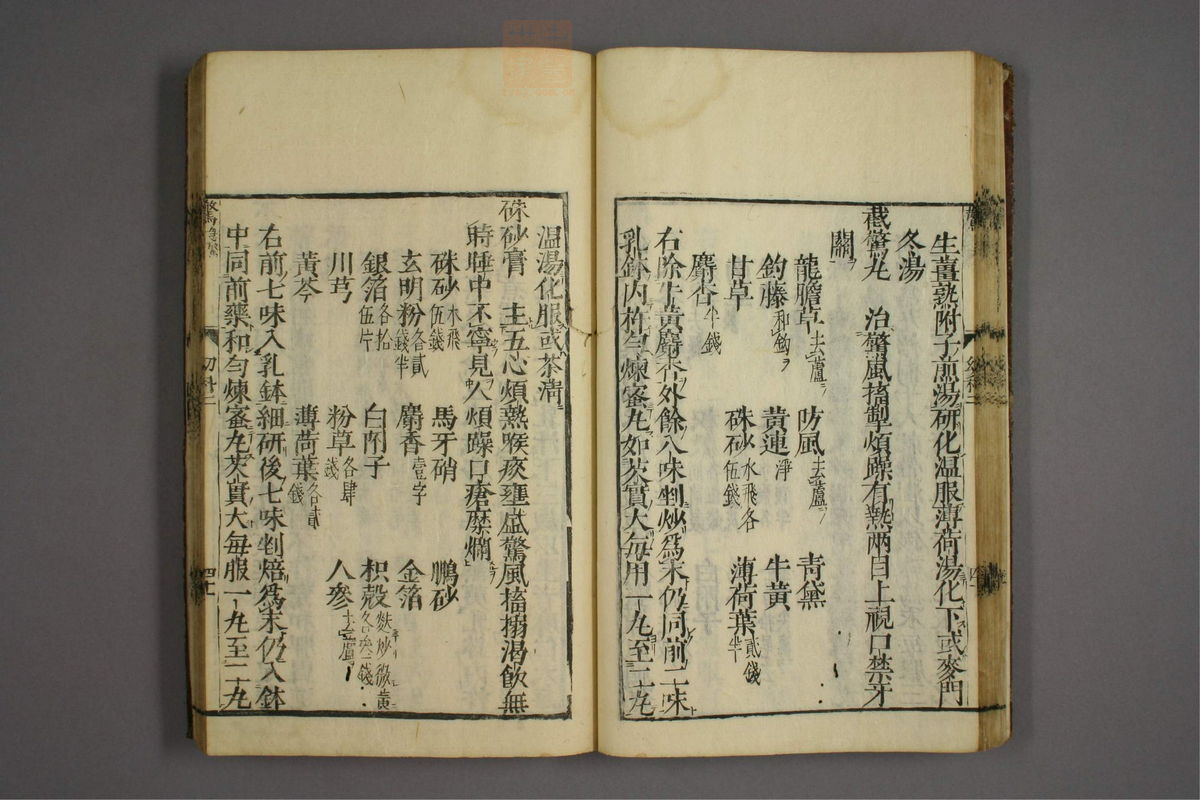 生薑熟附子煎湯研化温服薄荷湯化下或麥門
冬湯
截驚丸　治驚風搐掣煩躁有熱兩目上視口禁牙
關
龍膽草去蘆　防風去蘆　青黛
鈎藤和鈎　黄連淨　牛黄
甘草　硃砂水飛各伍錢　薄荷葉貳錢半
麝香半錢
右除牛黄麝香外餘八味剉炒為末仍同前二味
乳鉢内杵匀煉蜜丸如芡實大每用一丸至二丸
温湯化服或茶清
硃砂膏　主五心煩熱喉痰壅盛驚風搐搦渴飲無
時睡中不寧見人煩躁口瘡糜爛
硃砂水飛伍錢　馬牙硝　鵬砂
玄明粉各貳錢半　麝香壹字　金箔
銀箔各拾伍片　白附子　枳殼麩炒微黄各叁錢
川芎　粉草各肆錢　人參去蘆
黄芩　薄荷葉各貳錢
右前七味入乳鉢細研後七味剉焙為末仍入鉢
中同前藥和匀煉蜜丸芡實大每服一丸至二丸
幼科二
四七